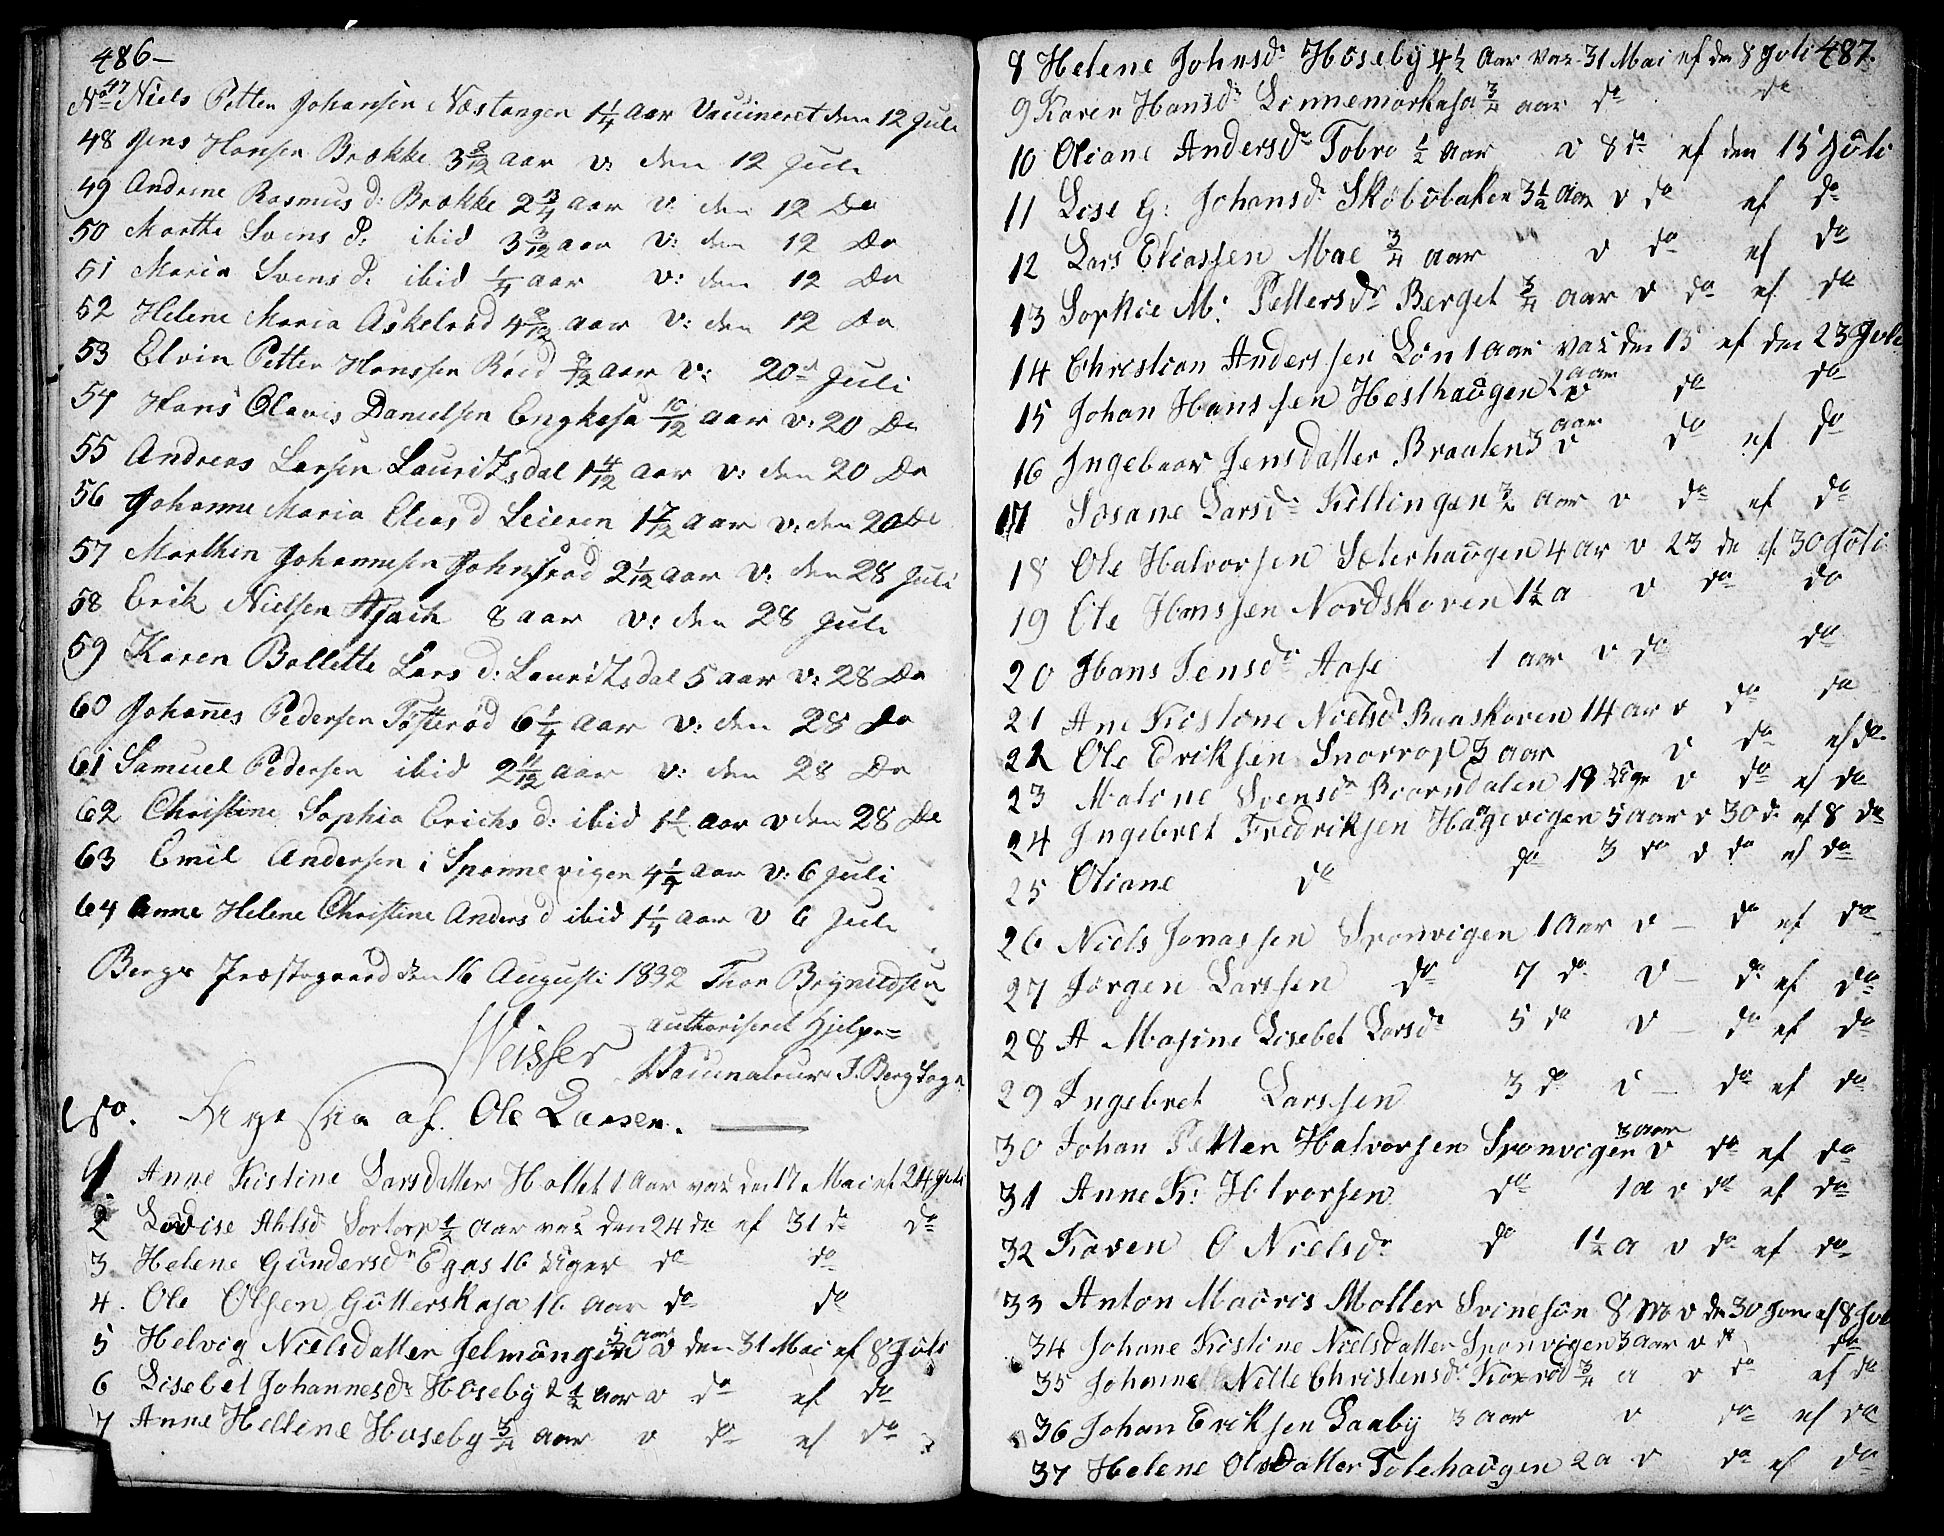 486-
No 47 Niels Petter Johansen Næstangen 1 1/4 Aar Vaccineret den 12 Juli
48 Jens Hansen Brække 3 2/12 aar v: den 12 Juli
49 Andrine Rasmus d: Brække 2 3/4 aar v: den 12 Do
50 Marthe Svens d: ibid 3 3/12 aar v: den 12 Do
51 Maria Svens d: ibid 1/4 aar v: den 12 Do
52 Helene Maria Askelrød 4 2/12 aar v: den 12 Do
53 Elvin Petter Hanssen Röed aar v: 20de Juli
54 Hans Olavis Danielsen Engkasa 10/12 aar v: 20 Do
55 Andreas Larsen Lauritzsdal 1 4/12 aar v: den 20 Do
56 Johanne Maria Elias d Leieren 1 7/12 aar v: den 20 Do
57 Marthin Johannesen Johnsrød 2 1/12 aar v: den 28 Juli
58 Erik Nielsen 8 aar v: den 28 Juli
59 Karen Bollette Lars d: Lauritzsdal 5 aar v: 28 Do
60 Johanes Pedersen Tosterød 6 1/4 aar v: den 28 Do
61 Samuel Pedersen ibid 2 11/12 aar v: den 28 Do
62 Christine Sophia Erichs d: ibid 1 1/2 aar v den 28 Do
63 Emil Andersen i Sponnevigen 4 1/4 aar v: 6 Juli
64 Anne Helene Christine Anders d ibid 1 1/4 aar v 6 Juli
Bergs Præstegaard den 16 Augusti 1832 Thor Brynildsen
authoriseret Hjelpe=
Weisser Vaccinateur I. Berg Sogn
af Ole Larsen.
1. Anne Kistine Larsdatter Holtet 1 Aar vac den 17 Mai ef 24 Juli
2 Lovise Ahlsd Sortorp 1/2 Aar vac den 24 do ef 31 do do
3. Helene Gundersdr Egas 16 Uger do do
4. Ole Olsen Gutterskasa 16 Aar do do
5 Helvig Nielsdatter Jelmungen 5 aar v den 31 Mai ef 8 Juli
6 Lisebet Johannesdr Høseby 2 1/2 Aar v do ef do
7 Anne Hellene Høseby 3/4 aar v do ef do
487.
8 Helene Johnsdr Høseby 4 1/2 Aar vac 31 Mai ef den 8 Juli
9 Karen Hansdr Linnemarkasa 3/4 aar do do
10 Oliane Andersdr Tobro 1/2 Aar v 8 do ef den 15 Juli
11 Lise G: Johansdr Skobobaken 3 1/2 Aar v do ef do
12 Lars Eliassen Mae 3/4 aar v do ef do
13 Sophie M: Pettersdr Berget 3/4 aar v do ef do
14 Christian Anderssen Løn 1 aar vac den 15 ef den 23 Juli
15 Johan Hanssen Hesthaugen 2 aar v do do
16 Ingeboor Jensdatter Braaten 3 aar v do ef do
17 Sosane Larsdr Killingen 3/2 aar v do ef do
18 Ole Halvorsen Seterhaugen 4 ar v 23 do ef 30 Juli
19 Ole Hanssen Nordskoven 1 1/2 a v do do
20 Hans Jensdr Aase 1 aar v do do
21 Ane Kistine Nielsdr Baaskoven 14 ar v do do
22 Ole Eriksen Snorrop 3 aar v do ef do
23 Maline Svensdr Braendalen 18 Uger v do ef do
24 Ingebret Fredriksen Hagevigen 5 aar v 30 do ef 8 do
25 Oliane do do 3 do v do ef do
26 Niels Jonassen Sponvigen 1 Aar v - do ef do
27 Jørgen Larssen do 7 do v - do ef do
28 A Masine Lisebet Larsdr 5 do v - do ef do
29 Ingebret Larssen 3 do v - do ef do
30 Johan Petter Halvorsen Sponvigen 3 aar v do ef do
31 Anne K: Hlvorsen do 1 a v do ef do
32 Karen O Nielsdr do 1 1/2 a v do ef do
33 Anton Mauris Moller Svinesun 8 m v den 30 Juni ef 8 Juli
34 Johane Kistine Nielsdatter Sponvigen 3 aar v do do
35 Johanne Nille Christensdr Korrød 3/4 a v do ef do
36 Johan Eriksen Laaby 3 aar v do ef do
37 Helene Olsdatter Tolehaugen 2 a v do ef do